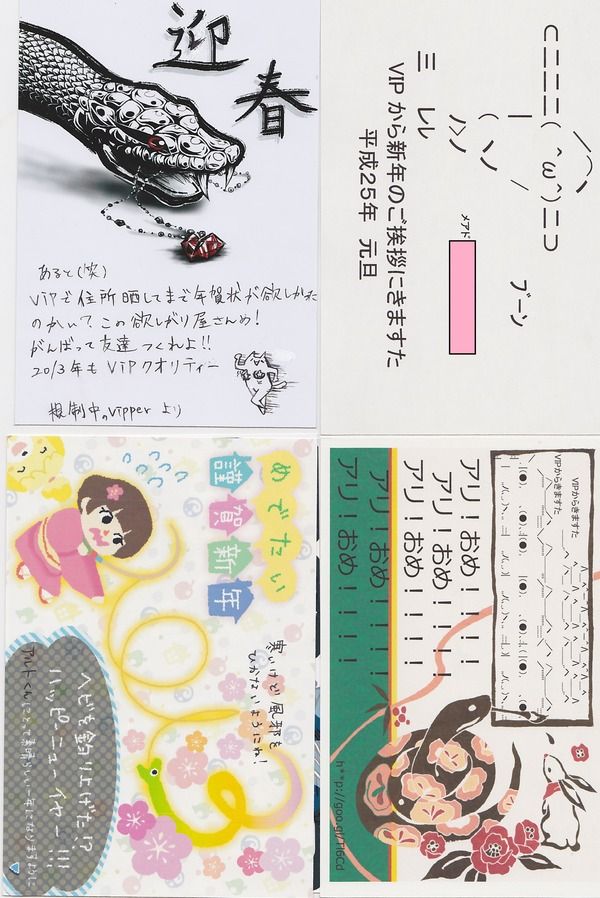 迎春
あると(笑)
VIPで住所晒してまで年賀状が欲しかった
のかい?この欲しがり屋さんめ!
がんばって友達つくれよ!!
2013年もVIPクオリティー
規制中のvipperより
⊂ニニニ( ^ω^)ニ⊃
ブーン
三 レレ
VIPから新年のご挨拶にきますた
平成25年 元旦
メアド
めでたい
謹賀新年
寒いけど風邪を
ひかないようにね!
ヘビを釣り上げた!?
ハッピーニューイヤー!!!
VIPからきますた
VIPからきますた
アリ!おめ!!!!!
アリ!おめ!!!!
アリ!おめ!!!!!
アリ!おめ!!!!
アリ!おめ!!!!!